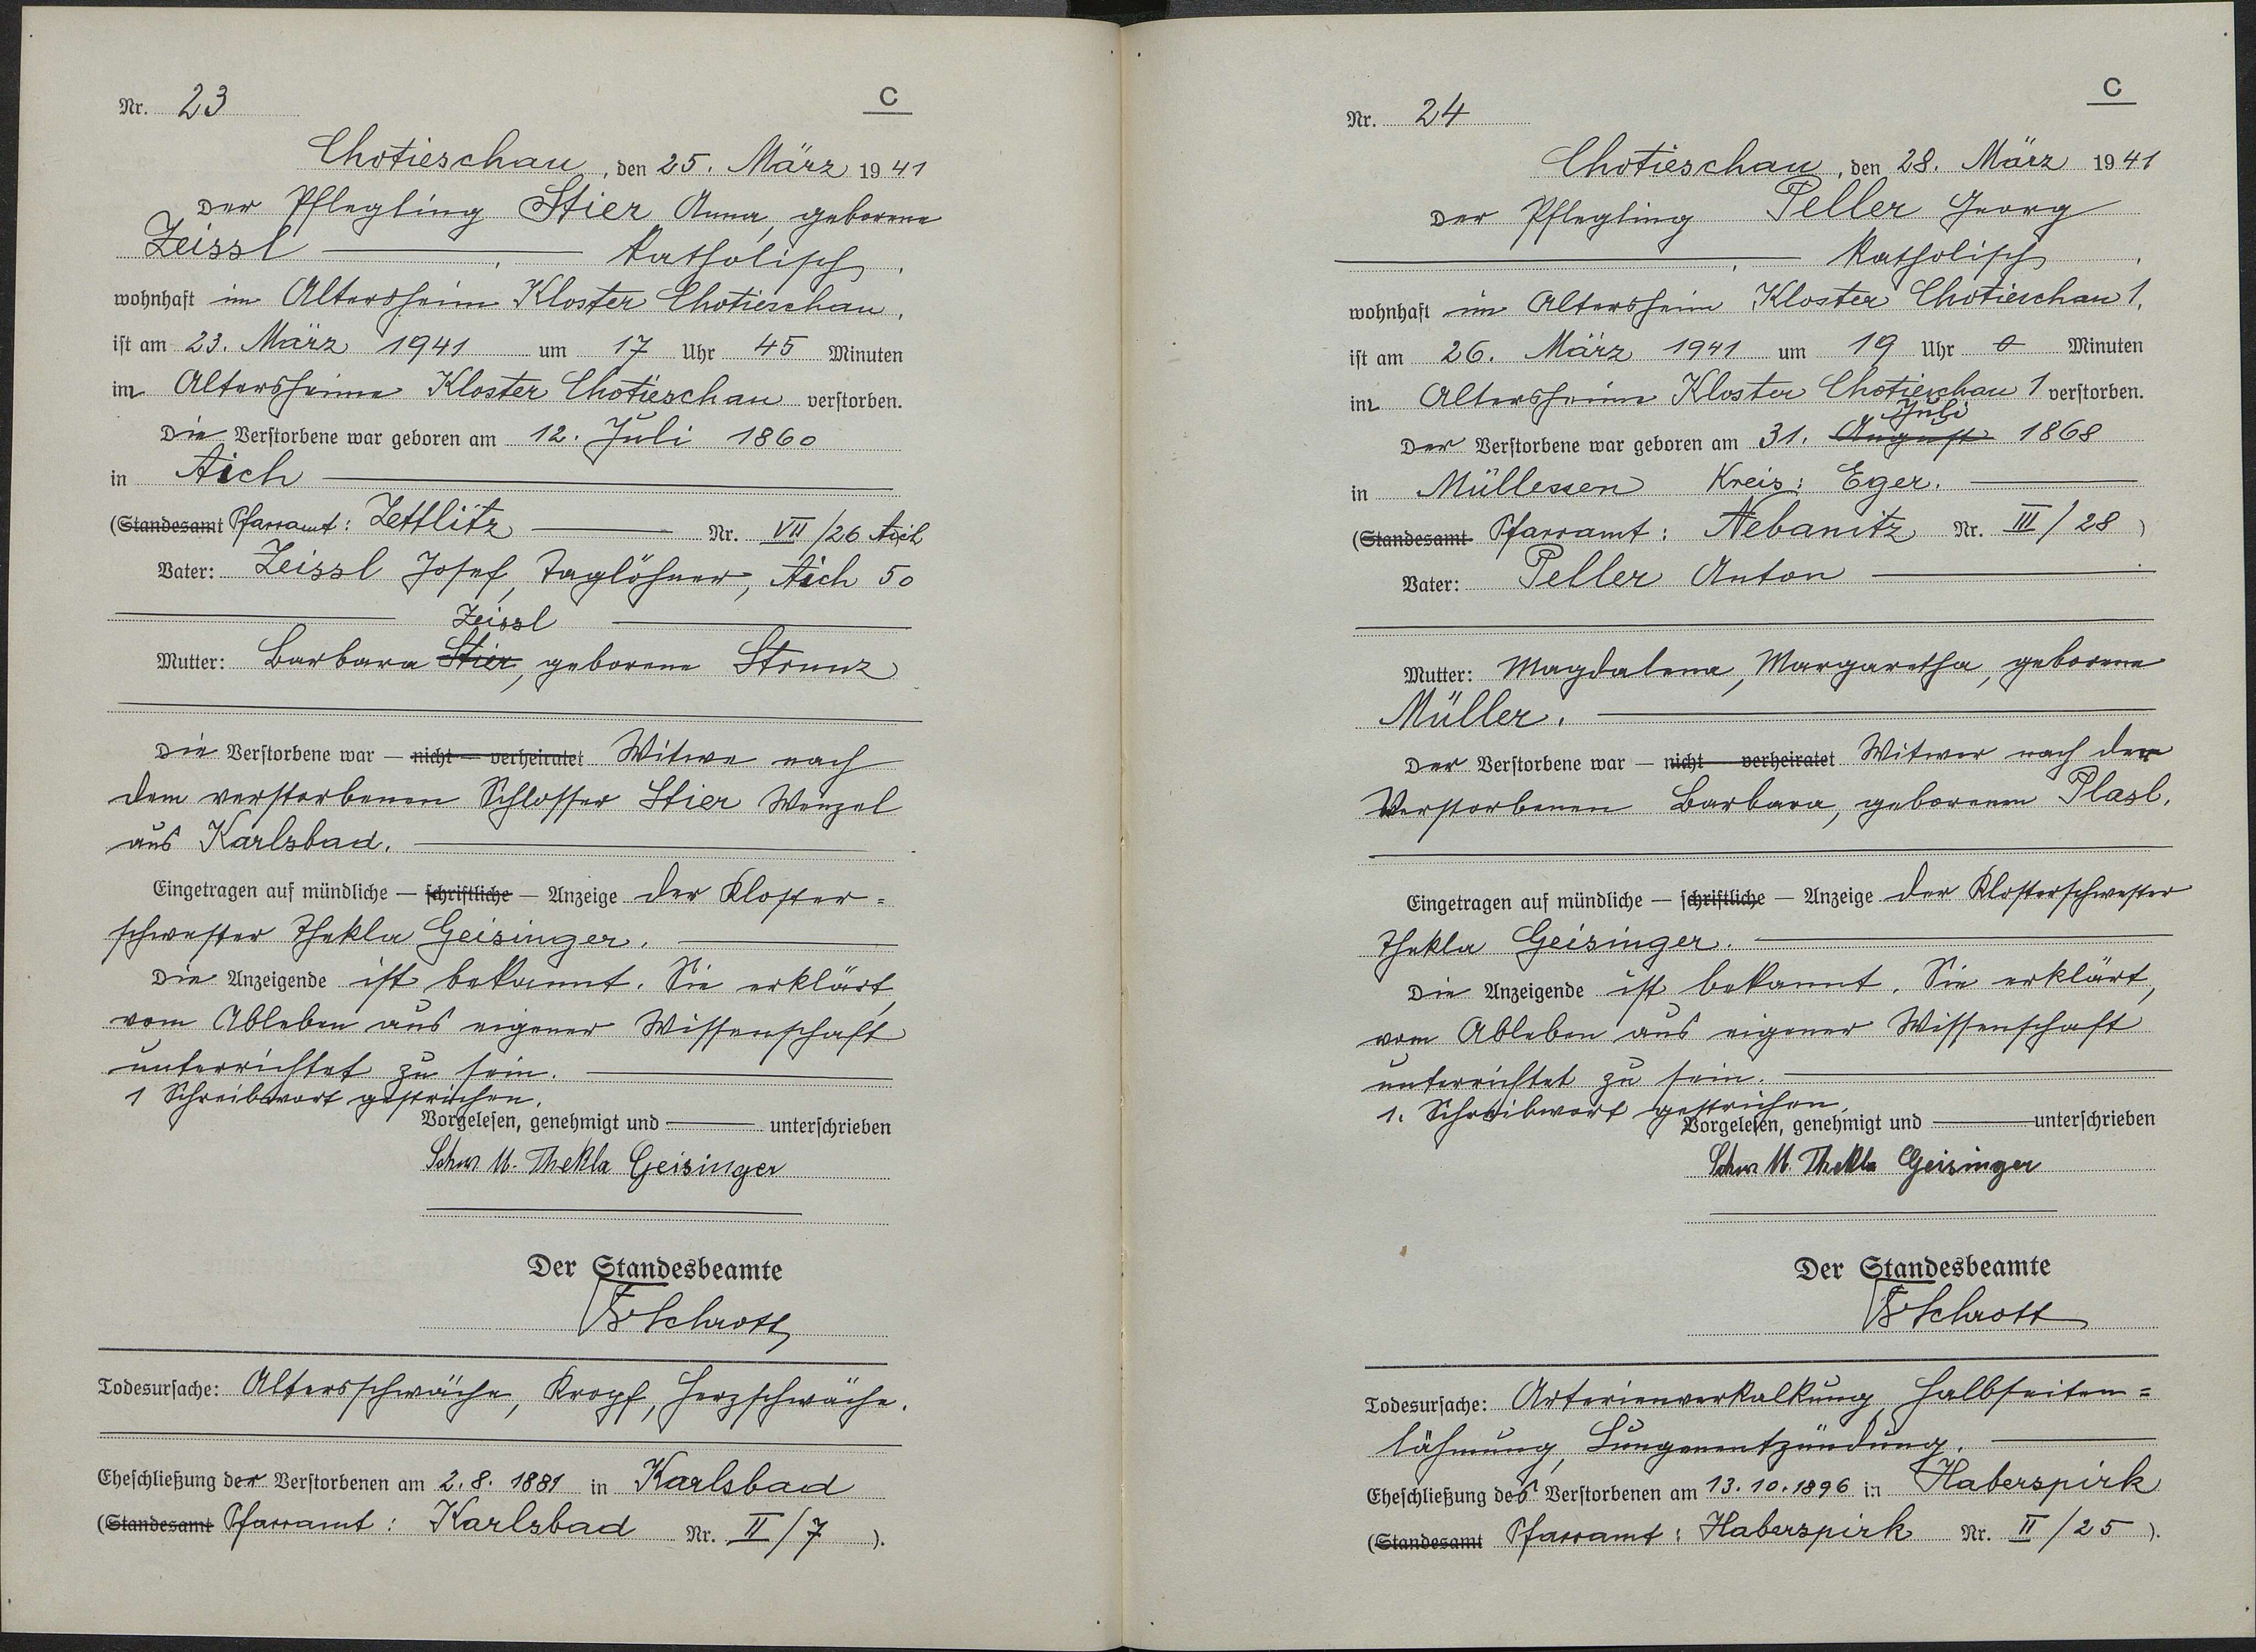 Nr. 23
C
Chotieschau, den 25. März 1941
Der Pflegling Stier Anna, geborene
Zeissl katholisch,
wohnhaft im Altersheim Kloster Chotieschau,
ist am 23. März 1941 um 17 Uhr 45 Minuten
im Altersheime Kloster Chotieschau verstorben.
Die Verstorbene war geboren am 12. Juli 1860
in Aich
(Standesamt Pfarramt: Zettlitz Nr. VII/26 Aich
Vater: Zeissl Josef, Taglöhner, Aich 50
Zeissl
Mutter: Barbara Stier, geborene Strunz
Die Verstorbene war — nicht — verheiratet Witwe nach
dem verstorbenen Schlosser Stier Wenzel
aus Karlsbad.
Eingetragen auf mündliche — schriftliche — Anzeige der Kloster=
schwester Thekla Geisinger.
Die Anzeigende ist bekannt. Sie erklärt,
vom Ableben aus eigener Wissenschaft
unterrichtet zu sein.
1 Schreibwort gestrichen.
Vorgelesen, genehmigt und unterschrieben
Schw M. Thekla Geisinger
Der Standesbeamte
Schrott
Todesursache: Altersschwäche, Kropf, Herzschwäche.
Eheschließung der Verstorbenen am 2.8.1881 in Karlsbad
(Standesamt Pfarramt: Karlsbad Nr. II/7).
Nr. 24
C
Chotieschau, den 28. März 1941
Der Pflegling Peller Georg
Katholisch,
wohnhaft im Altersheim Kloster Chotieschau 1,
ist am 26. März 1941 um 19 Uhr 0 Minuten
im Altersheime Kloster Chotieschau 1 verstorben.
Juli
Der Verstorbene war geboren am 31. August 1868
in Müllessen Kreis: Eger.
(Standesamt Pfarramt: Nebanitz Nr. III/28)
Vater: Peller Anton
Mutter: Magdalena, Margaretha, geborene
Müller.
Der Verstorbene war — nicht — verheiratet Witwer nach der
Verstorbenen Barbara, geborenen Plasl.
Eingetragen auf mündliche — schriftliche — Anzeige der Klosterschwester
Thekla Geisinger.
Die Anzeigende ist bekannt. Sie erklärt,
vom Ableben aus eigener Wissenschaft
unterrichtet zu sein.
1. Schreibwort gestrichen.
Vorgelesen, genehmigt und unterschrieben
Schw M. Thekla Geisinger
Der Standesbeamte
Schrott
Todesursache: Arterienverkalkung, Halbseiten=
lähmung, Lungenentzündung.
Eheschließung des Verstorbenen am 13.10.1896 in Haberspirk
(Standesamt Pfarramt: Haberspirk Nr. II/25).